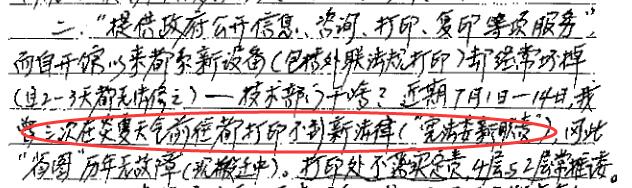 二、“提供政府公开信息、咨询、打印、复印等项服务”,
而自开馆以来都系新设备(包括外联法规打印)却经常坏掉
(过2-3天都无法修之)—技术部门干啥?近期7月1日—14日,我
曾三次在炎夏天气前往都打印不到新法律(“宪法委新职责”)同此
“省图”历年无故障(现搬迁中)。打印处不落实定责,4层与2层常推诿。